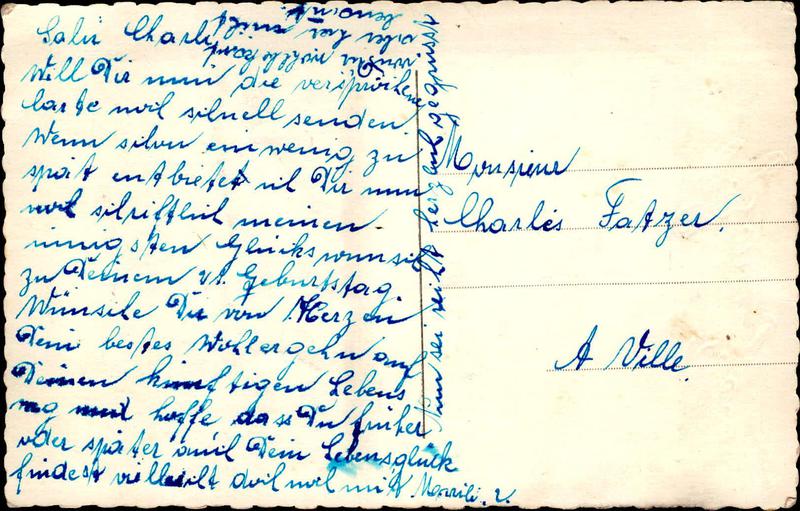 Salü Charli
Will Dir nun die versprochene
Karte noch schnell senden
Wenn schon ein wenig zu
spät entbietet ich Dir nun
noch schriftlich meinen
innigsten Glückswunsch
zu Deinem 21. Geburtstag.
Wünsche Dir von Herzen
Dein bestes Wohlergehn auf
Deinen künftigen Lebens
weg und hoffe dass Du früher
oder später auch Dein Lebensglück
findest vielleicht doch noch mit
Nun sei recht herzlich gegrüsst
oder
Monsieur
Charles Fatzer.
A Ville.